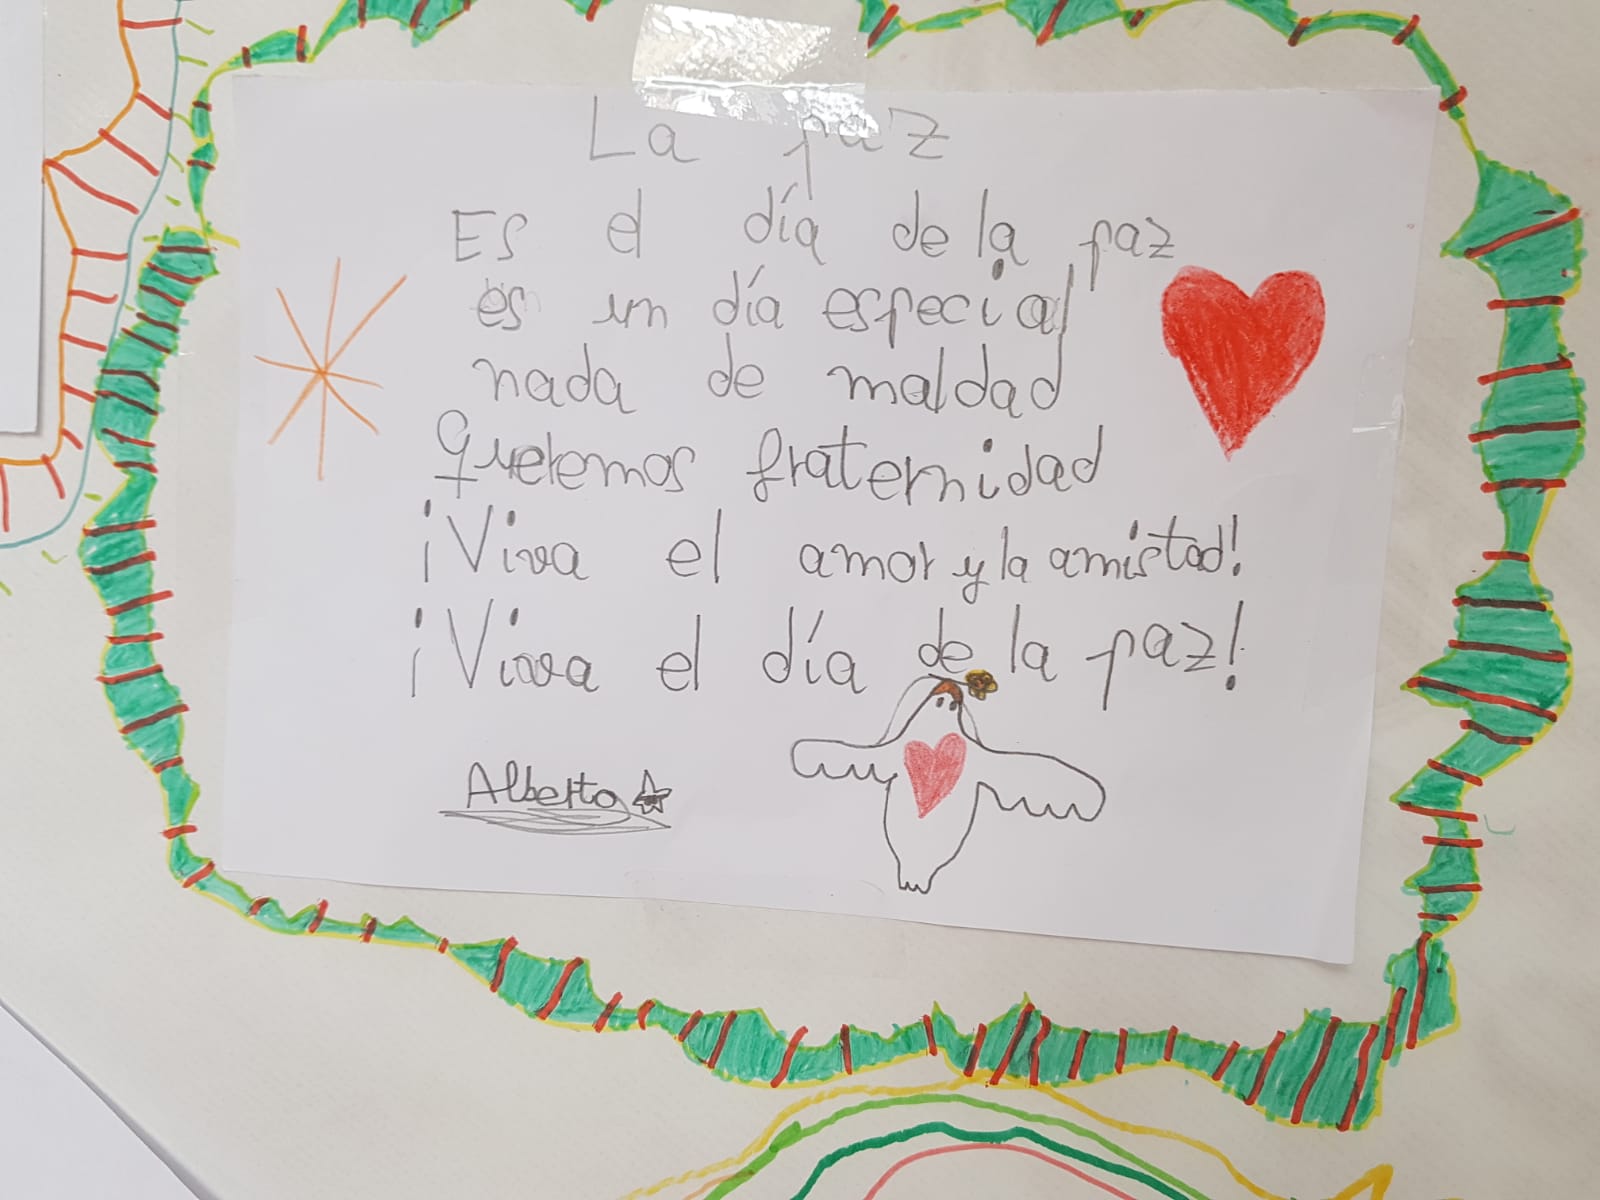 La paz
Es el día de la paz
es un día especial
nada de maldad
Queremos fraternidad
¡Viva el amor y la amistad!
¡Viva el día de la paz!
Alberto